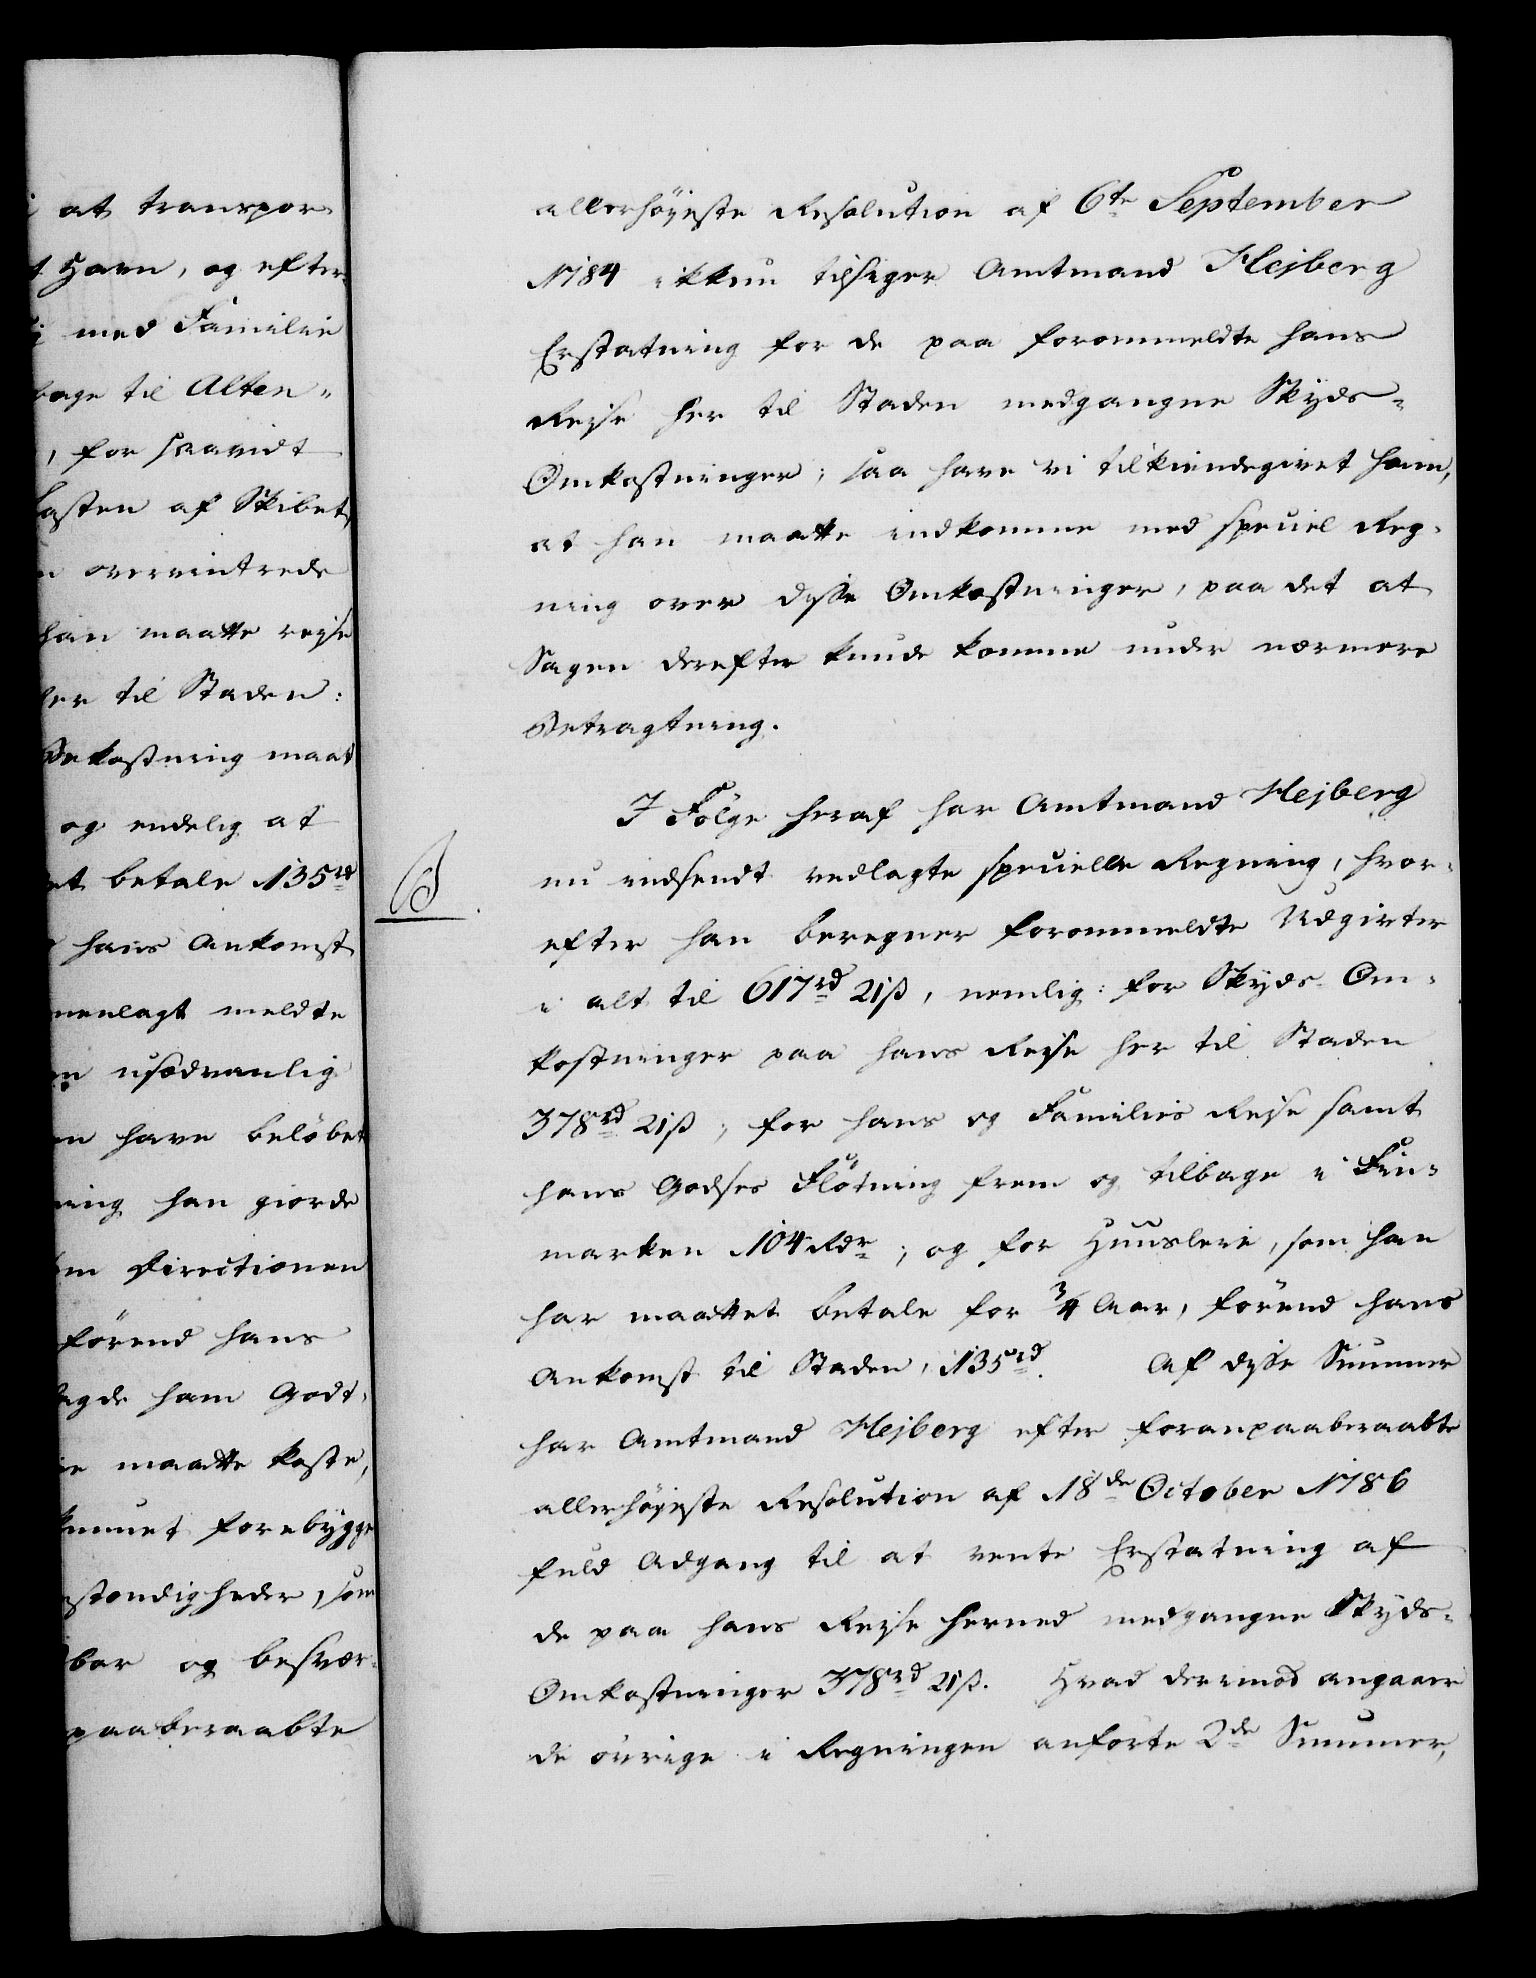 at transpor-
Havn, og efter-
med Familie
bage til Alten-
, for saavidt
Lasten af Skibet,
overvintrede
han maatte rejse
her til Staden:
Bekostning maat
og endelig at
et betale 135rd
hans Ankomst
menlagt meldte
usædvanlig
have beløbet
ning han giorde
om Directionen
förend hans
agde ham Godt-
maatte koste,
kunnet forebygge
stændigheder, som
bar og besvær-
paaberaabte
allerhöyeste Resolution af 6te September
1784 ikkun tilsiger Amtmand Hejberg
Erstatning for de paa forommeldte hans
Rejse her til Staden medgangne Skyds-
Omkostninger; saa have vi tilkiendegivet ham,
at han maatte indkomme med speciel Reg-
ning over disse Omkostninger, paa det at
Sagen derefter kunde komme under nærmere
Betragtning.
I Fölge heraf har Amtmand Hejberg
nu indsendt vedlagte specielle Regning, hvor-
efter han beregner forommeldte Udgivter
i alt til 617rd 21ß, nemlig: for Skyds-Om-
kostninger paa hans Reise her til Staden
378rd 21ß; for hans og Families Reise samt
hans Godses Flötning frem og tilbage i Fin-
marken 104 Rdr; og for Huusleie, som han
har maattet betale for 3/4 Aar, förend hans
Ankomst til Staden, 135rd. Af disse Summer
har Amtmand Hejberg efter foranpaaberaabte
allerhöyeste Resolution af 18de October 1786
fuld Adgang til at vente Erstatning af
de paa hans Rejse herned medgangne Skyds-
Omkostninger 378rd 21ß. Hvad derimod angaaer
de övrige i Regningen anförte 2de Summer,